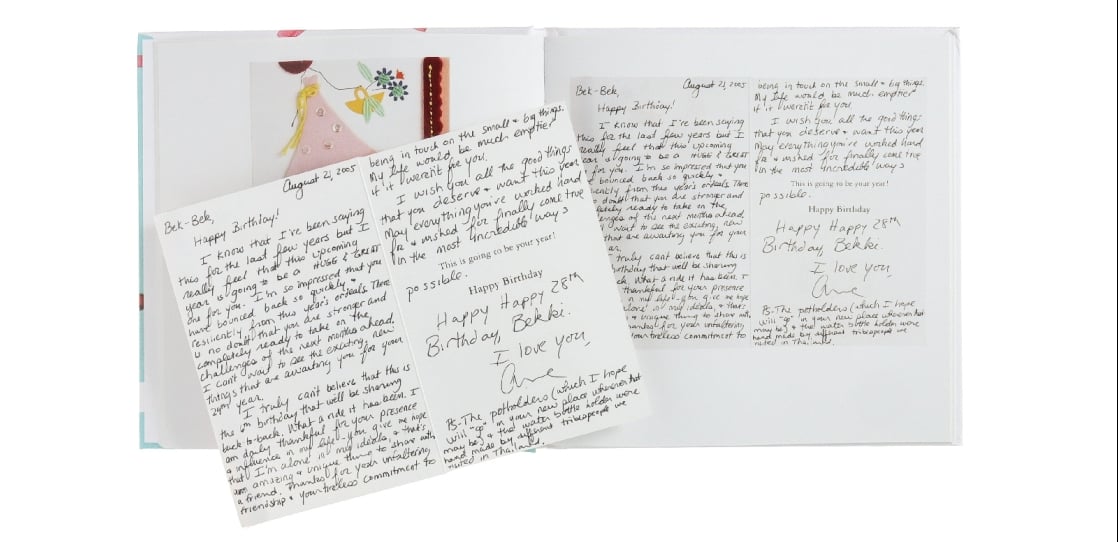 August 21, 2005
Bek-Bek,
Happy Birthday!
I know that I've been saying
this for the last few years but I
really feel that this upcoming
year is going to be a HUGE & GREAT
one for you. I'm so impressed that you
have bounced back so quickly &
resiliently, from this year's ordeals. There
is no doubt that you are stronger and
completely ready to take on the
challenges of the next months ahead.
I can't wait to see the exciting, new
things that are awaiting you for your
29th year.
I truly can't believe that this is
the 6th birthday that we'll be sharing
back-to-back. What a ride it has been. I
am daily thankful for your presence
& influence in my life - you give me hope
that I'm not alone in my ideals, & that's
an amazing & unique thing to share with
a friend. Thanks for your unfaltering
friendship & your tireless commitment to
being in touch on the small & big things.
My life would be much emptier
if it weren't for you.
I wish you all the good things
that you deserve & want this year
May everything you've worked hard
for & wished for finally come true
in the most incredible ways
This is going to be your year!
possible.
Happy Birthday
Happy Happy 28th
Birthday, Bekki.
I love you,
PS. The potholders (which I hope
will "go" in your new place wherever that
may be) & the water bottle holder were
hand made by different tribespeople we
visited in Thailand.
Bek-Bek,
August 21, 2005
Happy Birthday!
I know that I've been saying
this for the last few years but I
really feel that this upcoming
year is going to be a HUGE & GREAT
for you. I'm so impressed that you
bounced back so quickly &
from this year's ordeals. There
doubt that you are stronger and
ready to take on the
of the next months ahead.
wait to see the exciting, new
that are awaiting you for your
truly can't believe that this is
birthday that we'll be sharing
What a ride it has been. I
thankful for your presence
in my life - you give me hope
alone in my ideals, & that's
& unique thing to share with
Thanks for your unfaltering
your tireless commitment to
being in touch on the small & big things.
My life would be much emptier
if it weren't for you.
I wish you all the good things
that you deserve & want this year
May everything you've worked hard
for & wished for finally come true
in the most incredible ways
This is going to be your year!
possible.
Happy Birthday
Happy Happy 28th
Birthday, Bekki.
I love you,
PS. The potholders (which I hope
will "go" in your new place wherever that
may be) & the water bottle holder were
hand made by different tribespeople we
visited in Thailand.